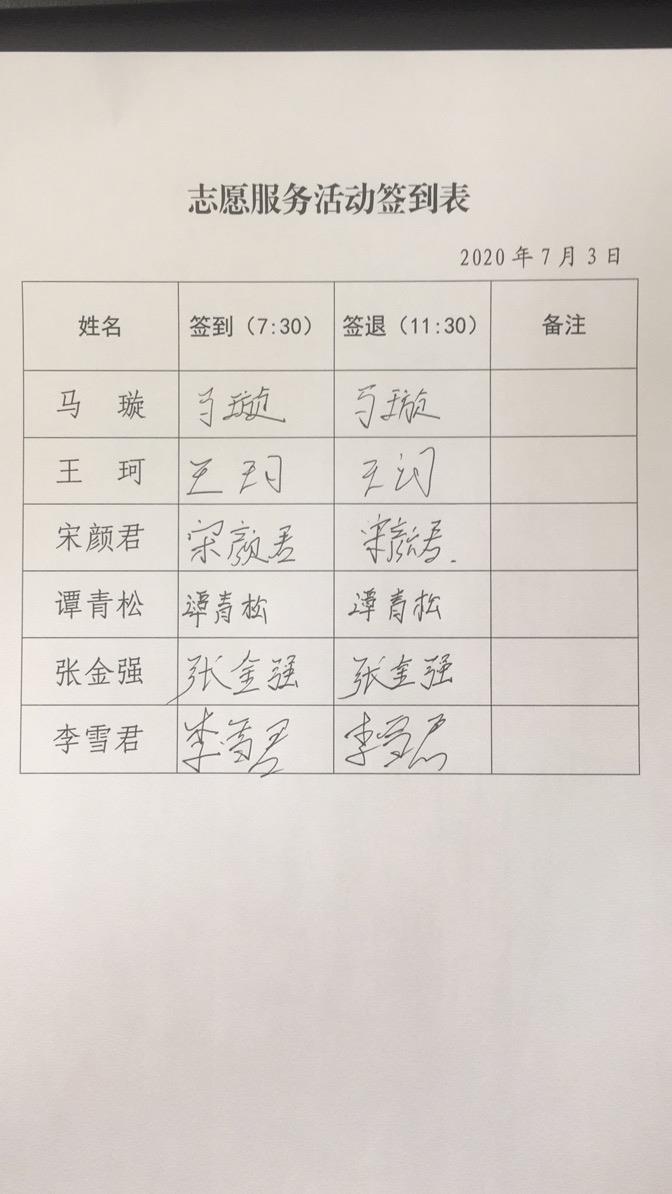 志愿服务活动签到表
2020年7月3日
姓名 签到（7:30） 签退（11:30） 备注
马 璇 马璇 马璇
王 珂 王珂 王珂
宋颜君 宋颜君 宋颜君
谭青松 谭青松 谭青松
张金强 张金强 张金强
李雪君 李雪君 李雪君